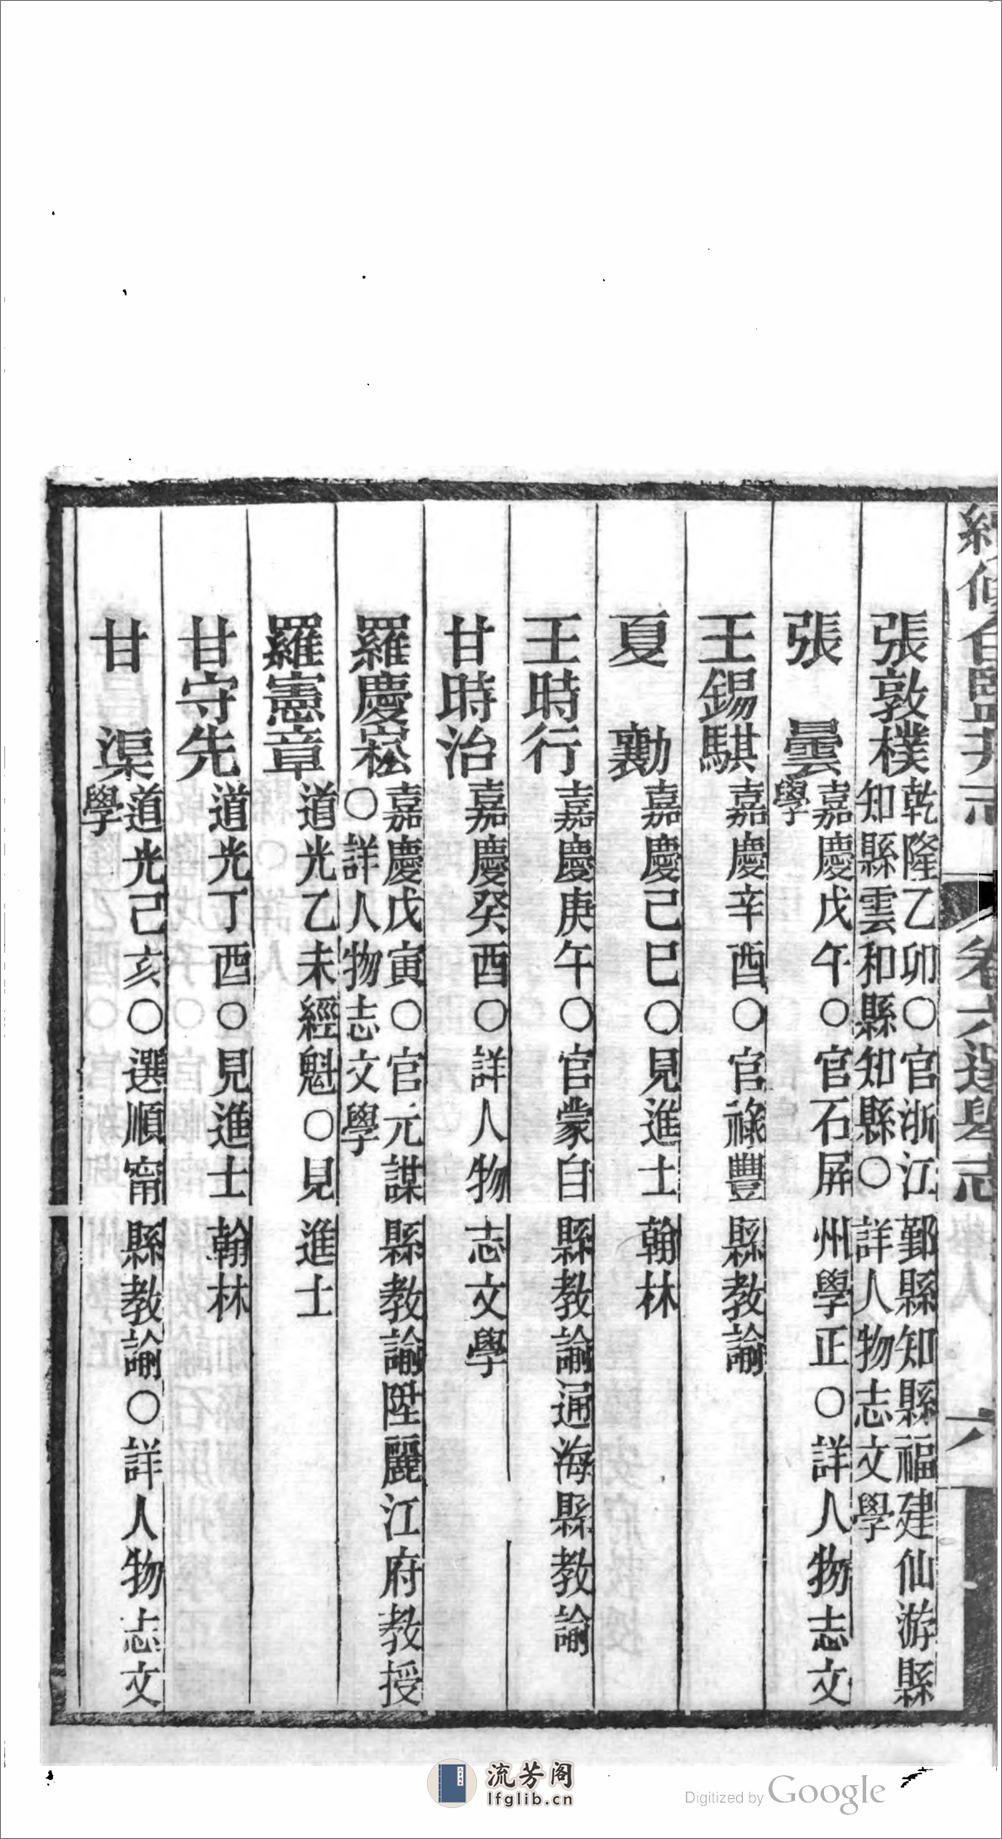 續修白鹽井志 卷六選舉志 六
張敦樸 乾隆乙卯○官浙江鄞縣知縣福建仙游縣
知縣雲和縣知縣○詳人物志文學
張曇 嘉慶戊午○官石屏州學正○詳人物志文
學
王錫騏 嘉慶辛酉○官祿豐縣教諭
夏勷 嘉慶己巳○見進士翰林
王時行 嘉慶庚午○官蒙自縣教諭通海縣教諭
甘時治 嘉慶癸酉○詳人物志文學
羅慶崧 嘉慶戊寅○官元謀縣教諭陞麗江府教授
○詳人物志文學
羅憲章 道光乙未經魁○見進士
甘守先 道光丁酉○見進士翰林
甘渠 道光己亥○選順甯縣教諭○詳人物志文
學
流芳阁
lfglib.cn
Digitized by Google